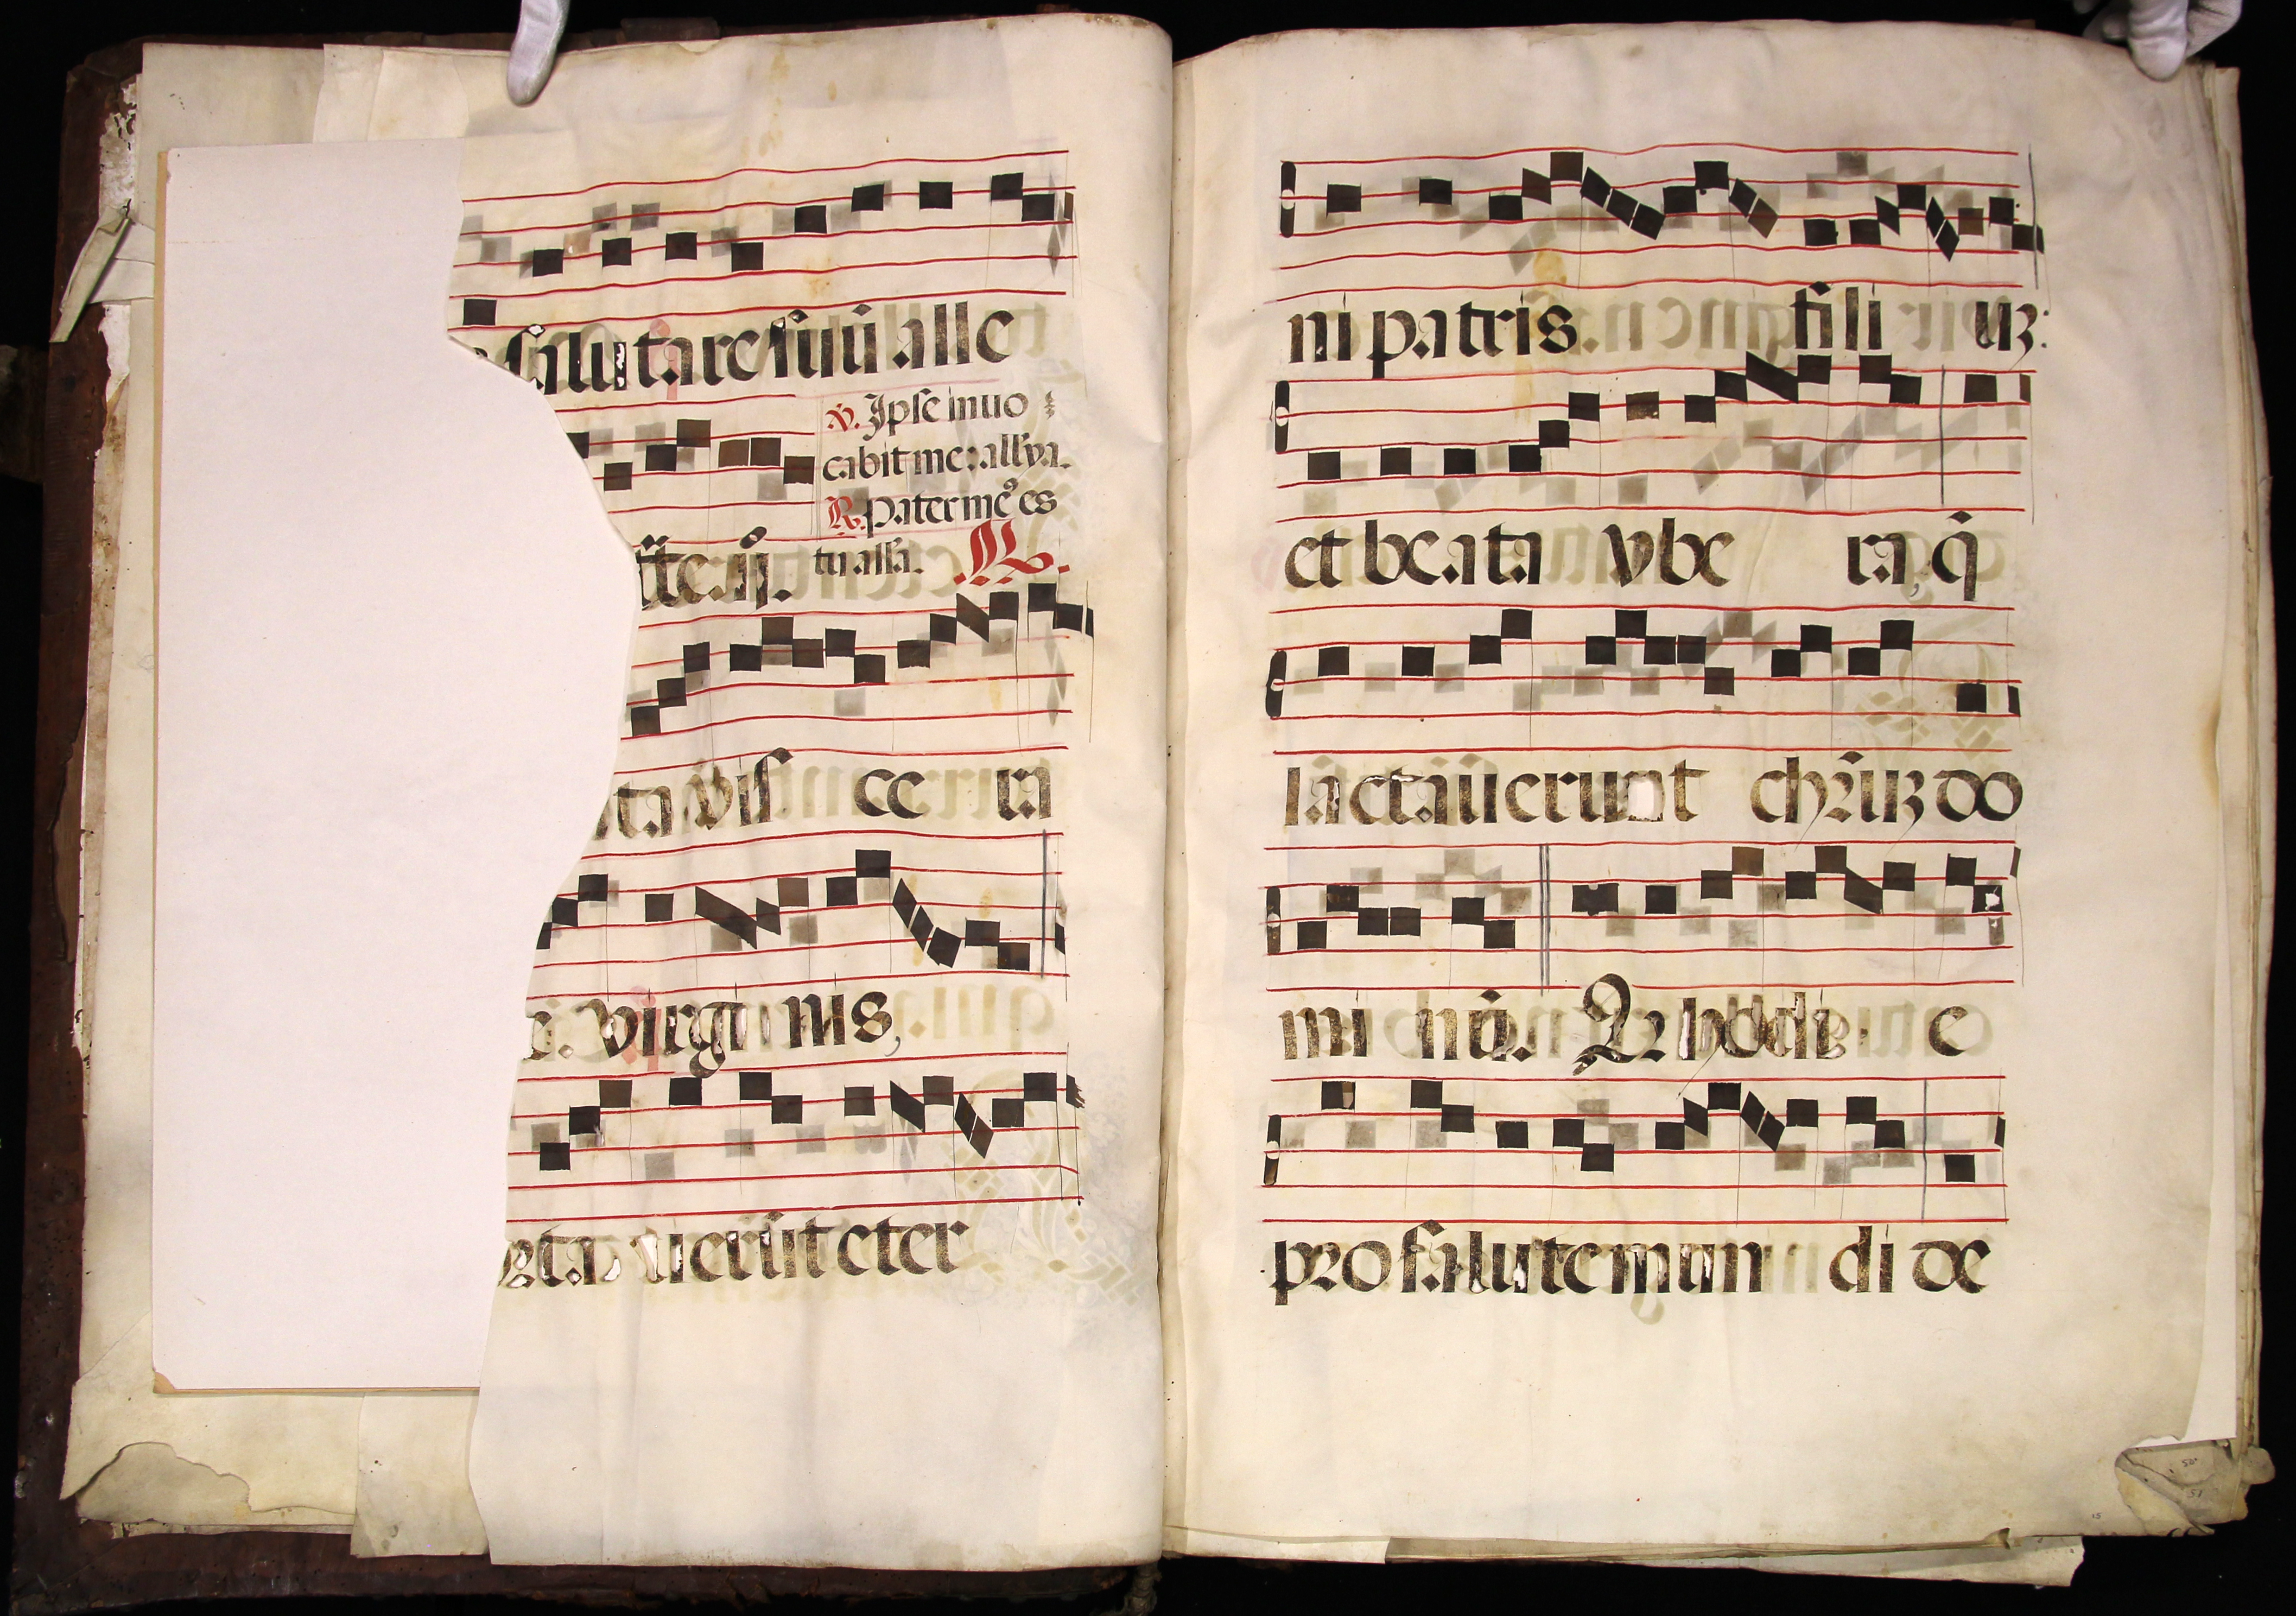 salutare suũ alle
℣. Ipse inuo
cabit me: allya.
℟. Pater me᷒ es
tu alla. ℟.
ta vis ce ra
e. virgi nis,
rta uerũt eter
ni patris. fili uȝ:
et beata vbe ra, q̃
lactauerunt chr̃uȝ do
mi nũ. Qr hodi e
pro salute mun di de